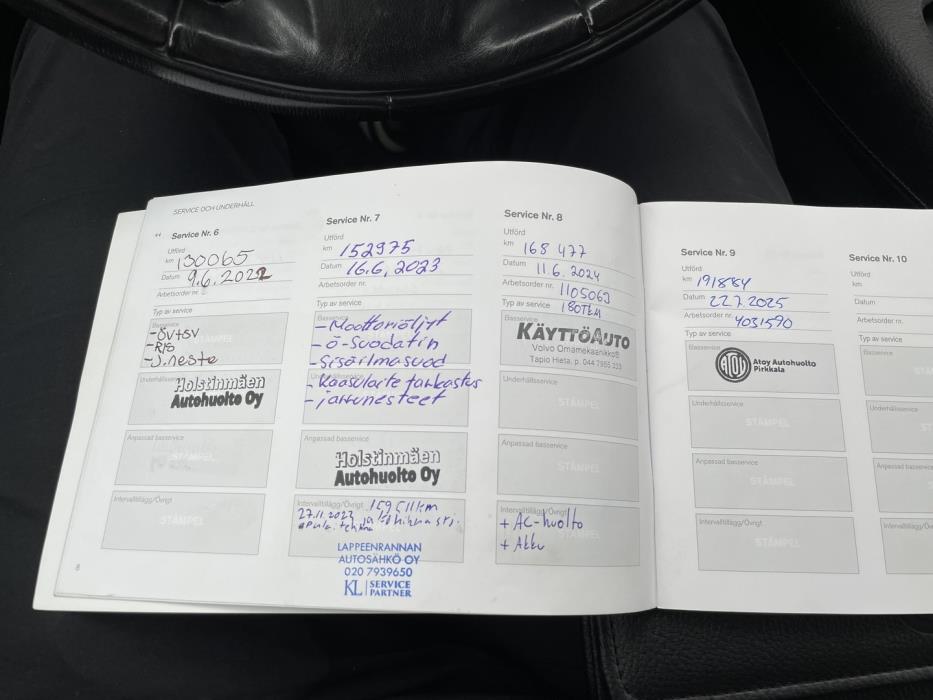 SERVICE OCH UNDERHÅLL
Service Nr. 6
Utförd
km 130065
Datum 9.6.2022
Arbetsorder nr.
Typ av service
Basservice
-ÖV+SV
-R/S
-J.neste
Underhållsservice
Holstinmäen
Autohuolto Oy
Anpassad basservice
STÄMPEL
Intervalltillägg/Övrigt
STÄMPEL
8
Service Nr. 7
Utförd
km 152975
Datum 16.6.2023
Arbetsorder nr.
Typ av service
Basservice
-Moottoriöljyt
-Ö-Suodatin
-Sisäilmasuod
-Kaasulaite tarkastus
-jarrunesteet
Anpassad basservice
Holstinmäen
Autohuolto Oy
Intervalltillägg/Övrigt 159511km
27.11.2023
LAPPEENRANNAN
AUTOSÄHKÖ OY
020 7939650
KL SERVICE
PARTNER
Service Nr. 8
Utförd
km 168 477
Datum 11.6.2024
Arbetsorder nr. 1105063
Typ av service 180TKM
Basservice
KÄYTTÖAUTO
Volvo Omamekaanikko®
Tapio Hieta, p. 044 7985 233
Underhållsservice
STÄMPEL
Anpassad basservice
STÄMPEL
Intervalltillägg/Övrigt
+ AC-huolto
+ Akku
Service Nr. 9
Utförd
km 191884
Datum 22.7.2025
Arbetsorder nr. 4031590
Typ av service
Basservice
Atoy Autohuolto
Pirkkala
Underhållsservice
STÄMPEL
Anpassad basservice
STÄMPEL
Intervalltillägg/Övrigt
STÄMPEL
Service Nr. 10
Utförd
km
Datum
Arbetsorder nr.
Typ av service
Basservice
Underhållsservice
Anpassad basservice